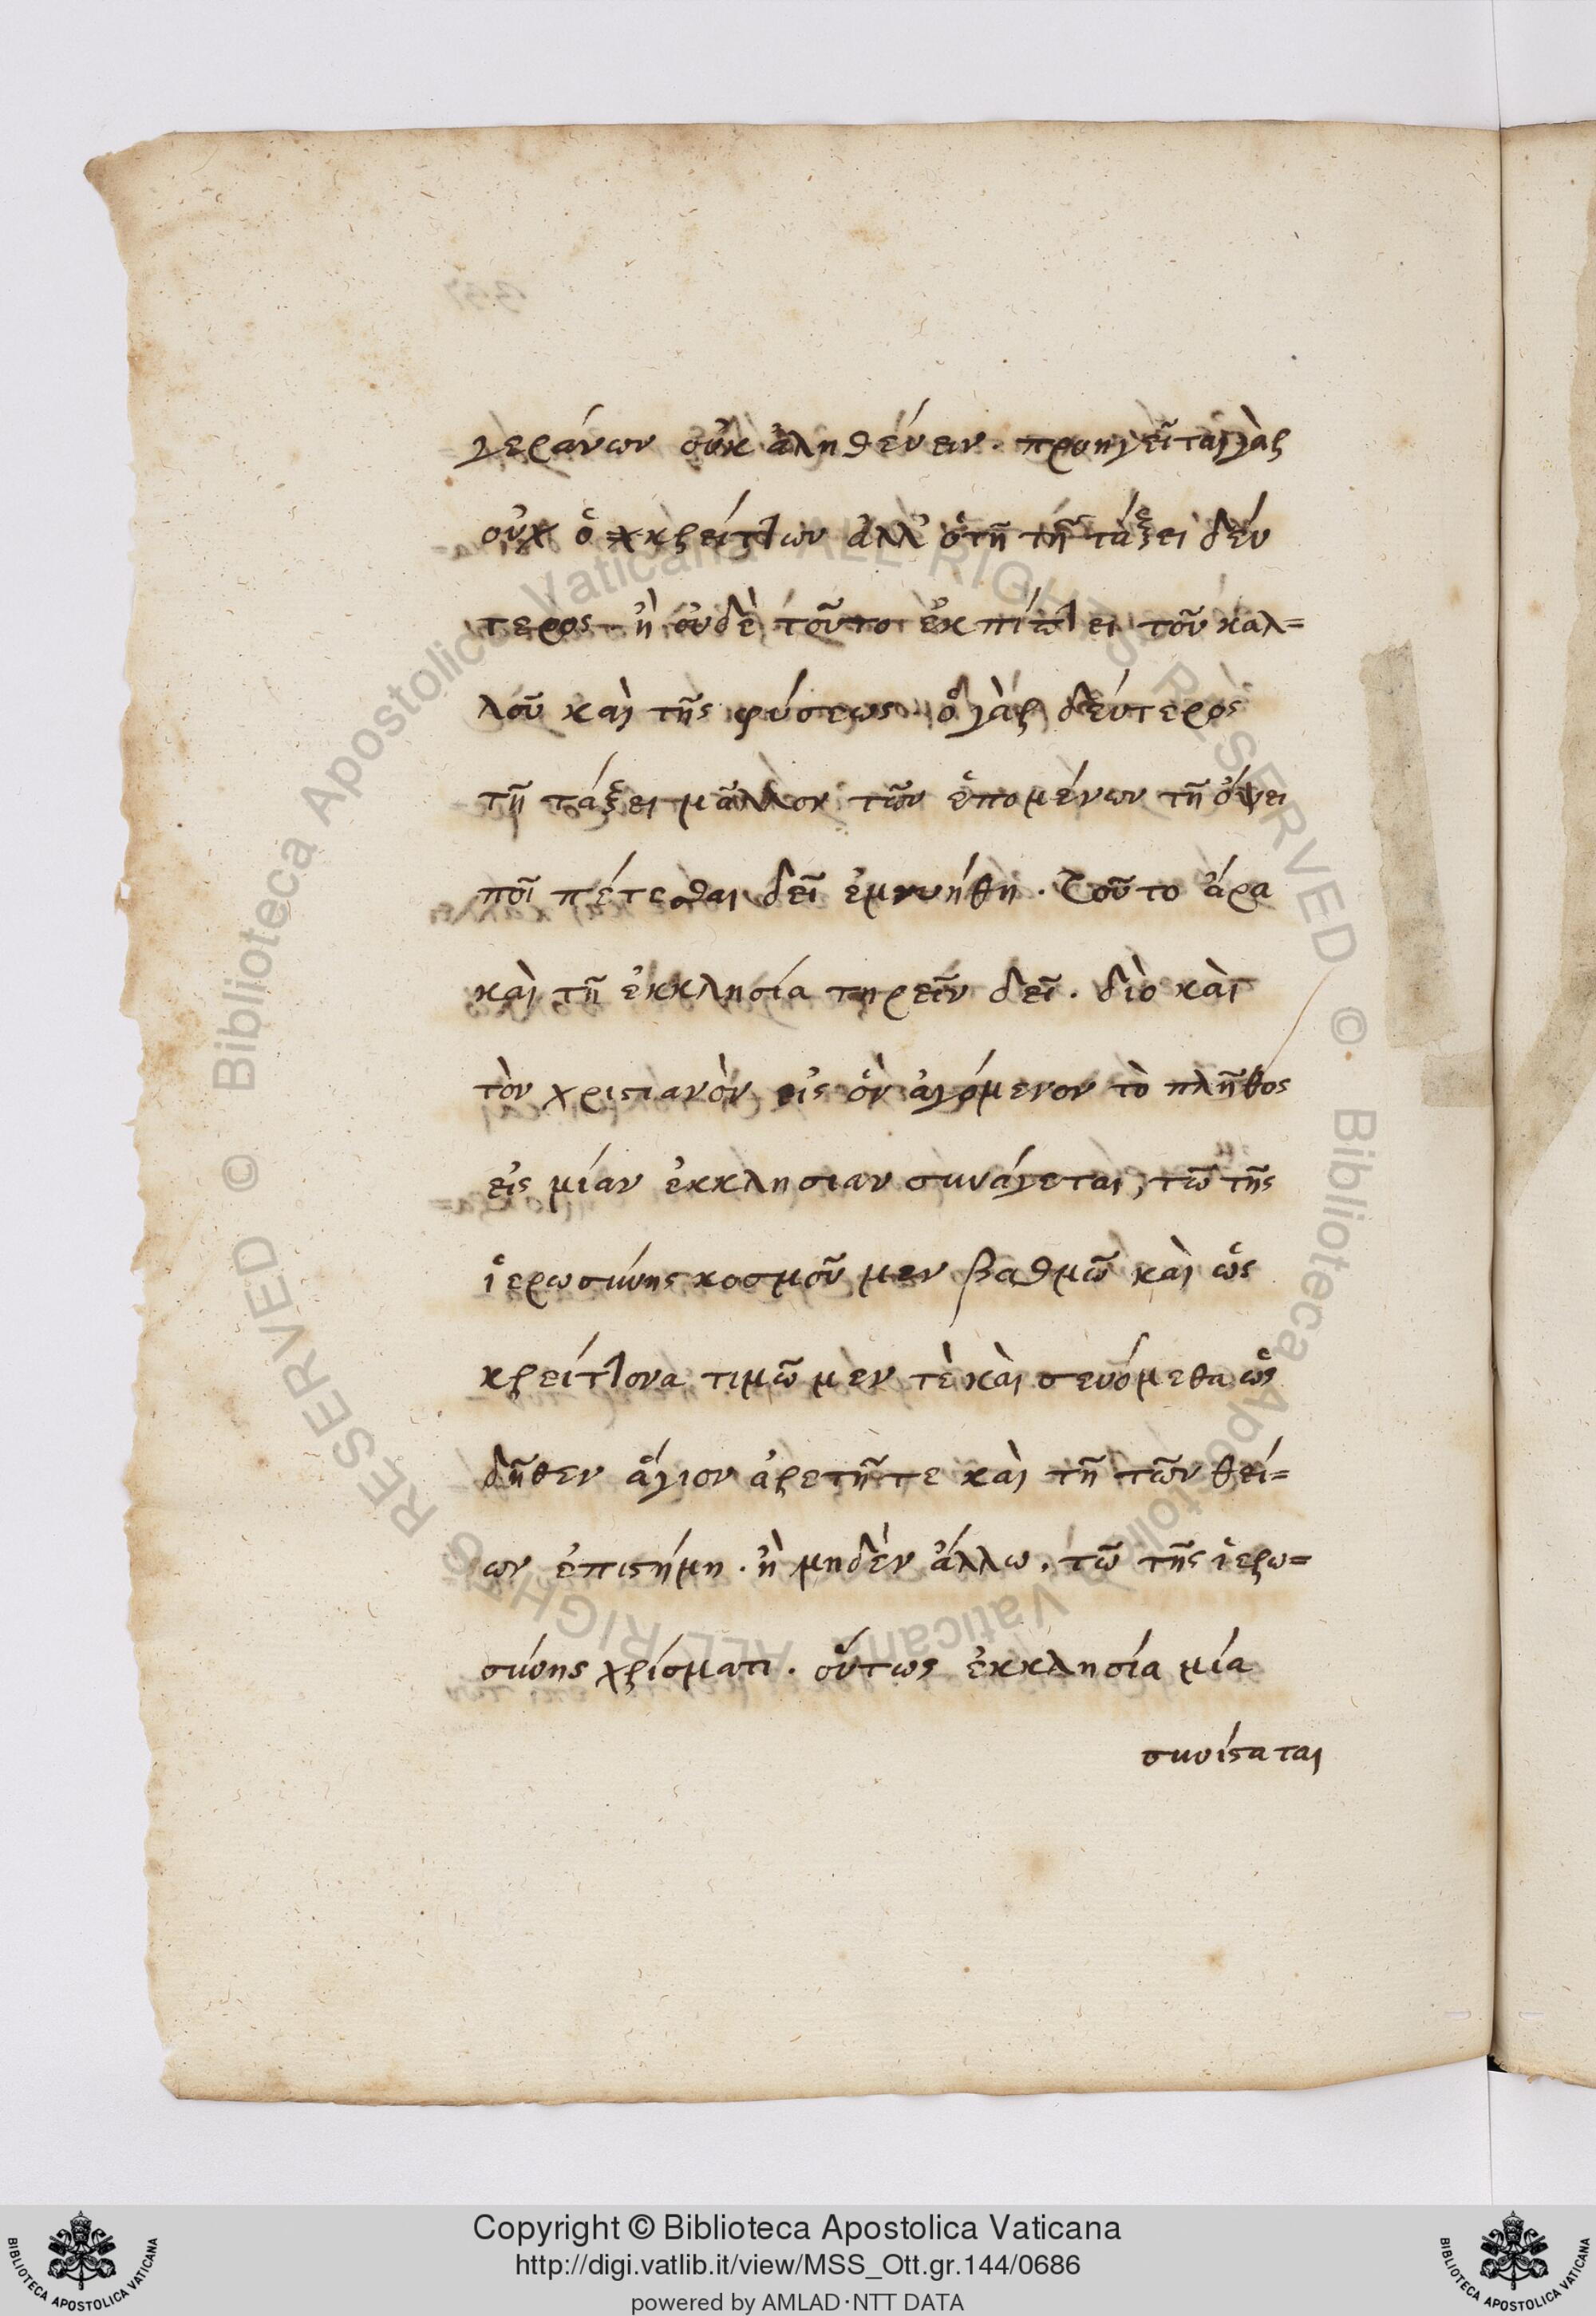 γεράνων οὐκ ἀληθέυειν. προηγεῖται γὰρ
οὐχ ὁ κρείττων ἀλλ' ὁ τῆ τάξει δέυ
τερος. ἢ οὐδὲ τοῦτο ἐκπίπτει τοῦ καλ=
λοῦ καὶ τῆς φύσεως. ὁ γὰρ δέυτερος
τῆ τάξει μᾶλλον τῶν ἑπομένων τῆ ὄψει
ποῖ πέτεσθαι δεῖ ἐμνήθη. Τοῦτο ἄρα
καὶ τῆ ἐκκλησία τηρεῖν δεῖ. διὸ καὶ
τὸν χριστιανὸν εἰς ὃν ἀγόμενον τὸ πλῆθος
εἰς μίαν ἐκκλησιαν συνάγεται, τῶ τῆς
ἱερωσύνης κοσμοῦμεν βαθμῶ καὶ ὡς
κρείττονα τιμῶμὲν τὲ καὶ σευόμεθα ὡς
δῆθεν ἅγιον ἀρετῆ τε καὶ τῆ τῶν θεί=
ων ἐπιστήμη. ἢ μηδὲν ἄλλω, τῶ τῆς ἱερω=
σύνης χρίσματι. οὕτως ἐκκλησία μία
συνίσταται
Copyright © Biblioteca Apostolica Vaticana
http://digi.vatlib.it/view/MSS_Ott.gr.144/0686
powered by AMLAD·NTT DATA